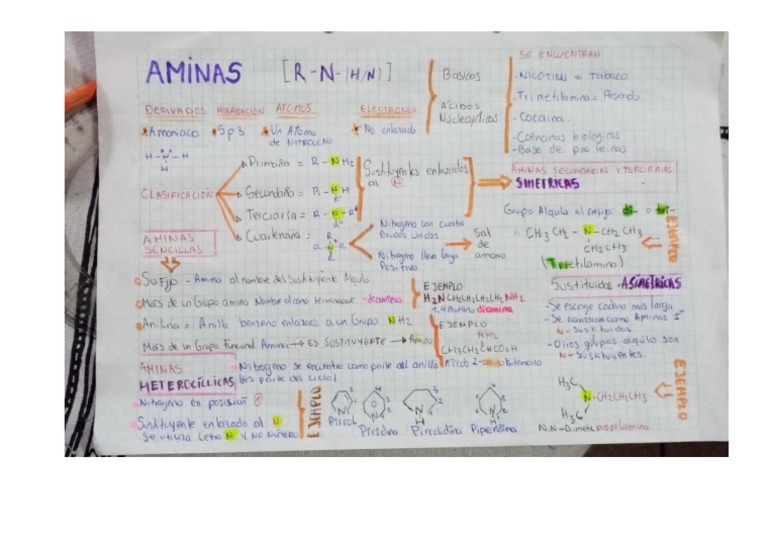 AMINAS [R-N-(H/N)]
Básicos
Ácidos
Nucleofílicos
SE ENCUENTRAN
-NICOTINA = Tabaco
-Trimetilamina = Pescado
-Cocaina
-Coenzimas biologicas
-Base de proteinas
DERIVADOS HIBRIDACIÓN ATOMOS ELECTRONES
Amoniaco
Sp3
Un Atomo
de NITROGENO
No enlazado
H-N-H
H
CLASIFICACIÓN
Primaria = R-NH2
Secundaria = R-NH
Terciaria = R-N-R
Sustituyentes enlazados
al N
AMINAS SECUNDARIAS Y TERCIARIAS
SIMETRICAS
Nitrogeno con cuatro
Grupos unidos
Nitrogeno lleva carga
Positiva
Sal
de
amonio
Grupo Alquilo el prefijo: di- o tri-
CH3CH2-N-CH2CH3
CH2CH3
(Trietilamina)
EJEMPLO
AMINAS
SENCILLAS
Sufijo - Amina al nombre del Sustituyente Alquilo
Mas de un Grupo amino Nombre alcano terminacion -diamina
EJEMPLO
H2NCH2CH2CH2CH2NH2
1,4 Butano diamina
Anilina = Anillo benceno enlazado a un Grupo NH2
Mas de un Grupo Funcional Amina → ES SUSTITUYENTE → Amino
EJEMPLO
NH2
CH3CH2CHCO2H
Acido 2-amino butanoico
Sustituidas ASIMETRICAS
-Se escoge cadena mas larga
-Se nombran como Aminas 1°
N-Sustituidas
-Otros grupos alquilo son
N-Sustituyentes.
AMINAS
HETEROCÍCLICAS
Nitrogeno se encuentra como parte del anillo
Nitrogeno en posición 1
Sustituyente enlazado al N
Se utiliza Letra N Y NO NÚMERO
EJEMPLO
Pirrol
Pirrolidina
Piperidina
EJEMPLO
H3C
N-CH2CH2CH3
H3C
N,N-Dimetilpropilamina